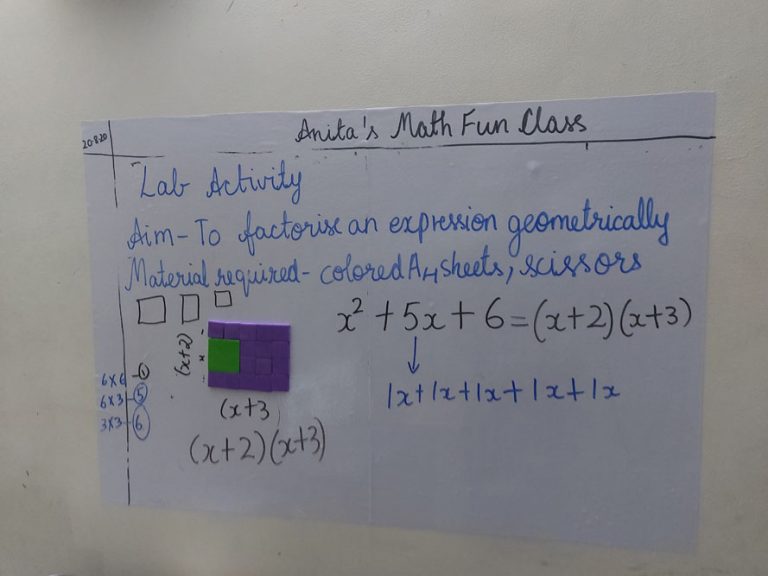 Anita's Math Fun Class
20·8·20
Lab Activity
Aim- To factorise an expression geometrically
Material required- colored A4 sheets, scissors
x² + 5x + 6 = (x+2)(x+3)
1x+1x+1x+1x+1x
(x+2)
x
(x+3
(x+2)(x+3)
6x6
6x3 5
3x3 6